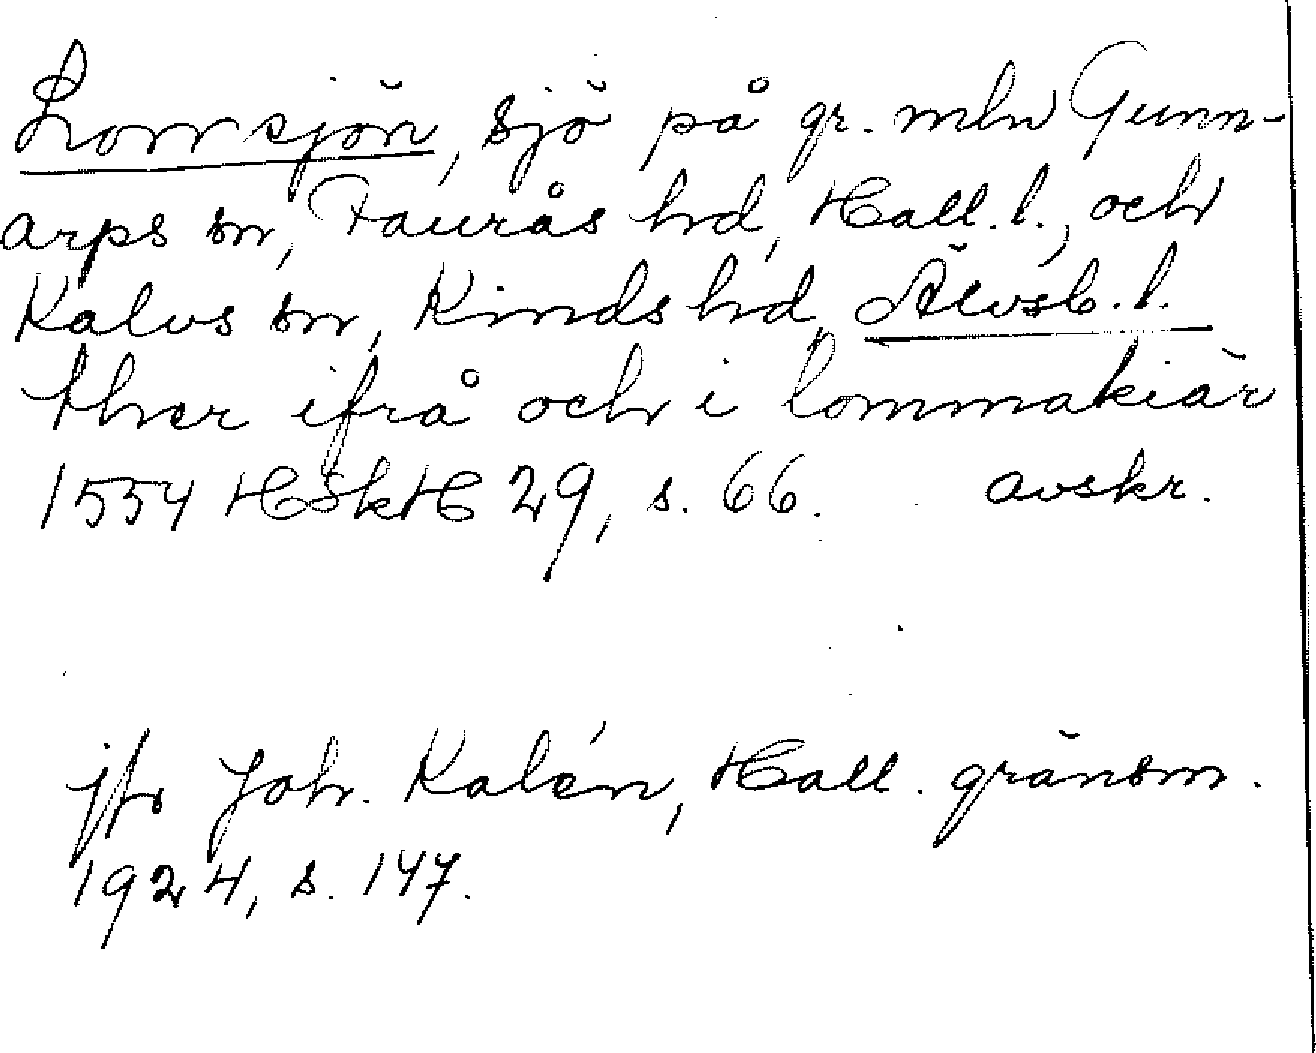 Lomsjön, sjö på gr. mln Gunn-
arps sn, Faurås hd, Hall. l., och
Kalvs sn, Kinds hd, Älvsb. l.
ther ifrå och i lommakiär
1554 HSkH 29, s. 66. avskr.
jfr Joh. Kalén, Hall. gränsm.
1924, s. 147.